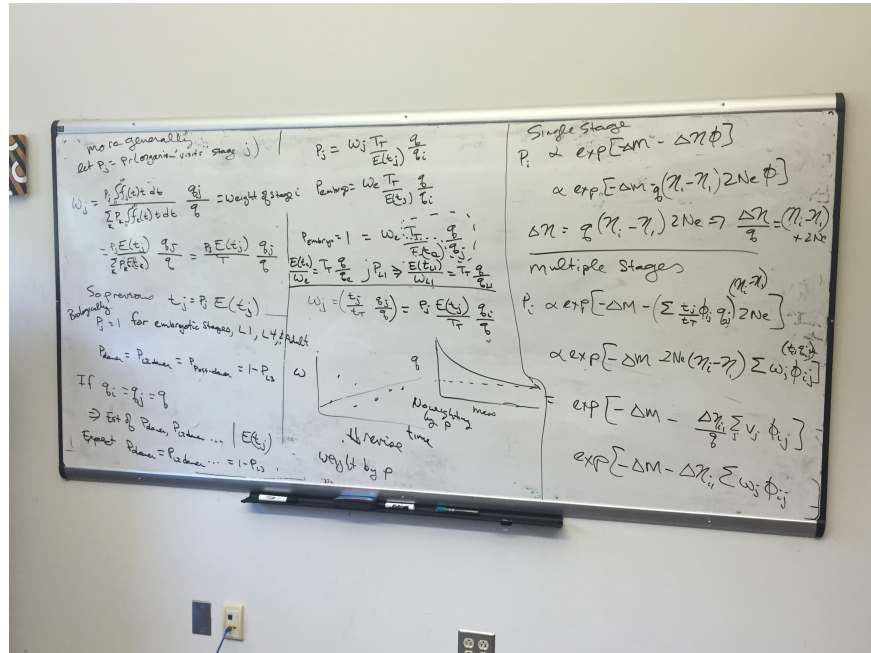 more generally
let Pj = Pr(organism visits stage j)
ωj = Pj∫fj(t)t dt / Σk Pk∫fk(t)t dt qj/q = weight of stage i
= PjE(tj)/Σk PkE(tk) qj/q = PjE(tj)/T qj/q
So previous tj = Pj E(tj)
Biologically
Pj = 1 for embryotic stages, L1, L4, & Adult
Pdauer = PL2dauer = PPost-dauer = 1-PL3
If qi = qj = q
⇒ Est of Pdauer, PL2dauer ... | E(tj)
Expect Pdauer = PL2dauer ... = 1-PL3
Pj = ωj TT/E(tj) q/qi
Pembryo = ωe TT/E(te) q/qi
Pembryo = 1 = ωe TT/E(te) q/qi
E(te)/ωe = TT q/qe ; PL1 ⇒ E(tL1)/ωL1 = TT q/qL1
ωj = (tj/tT qj/q) = Pj E(tj)/TT qi/q
ω
time
q
mass
No weighting
by P
⇓ revise
weight by p
Single Stage
Pi ∝ exp[-ΔM - Δηϕ]
∝ exp[-ΔM - q(ηi-η1) 2Ne ϕ]
Δη = q(ηi-η1) 2Ne ⇒ Δη/q = (ηi-η1) + 2Ne
multiple Stages
(ηi-η1)
Pi ∝ exp[-ΔM - (Σ tj/tT ϕij qj) 2Ne]
(tj qj)
∝ exp[-ΔM - 2Ne(ηi-η1) Σ ωj ϕij]
= exp[-ΔM - Δηi1/q Σj vj ϕij]
exp[-ΔM - Δηi1 Σ ωj ϕij]